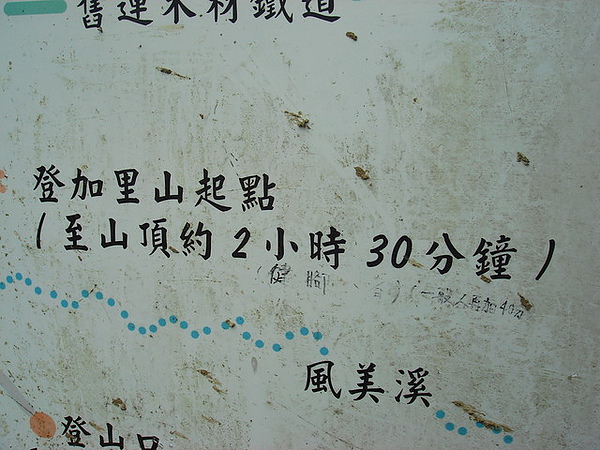 舊運木材鐵道
登加里山起點
(至山頂約 2 小時 30 分鐘)
(健腳 者)(一般人再加40分
風美溪
登山口